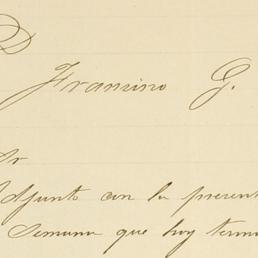 D
Francisco G.
Sr
Adjunto con la present
Semana que hoy term